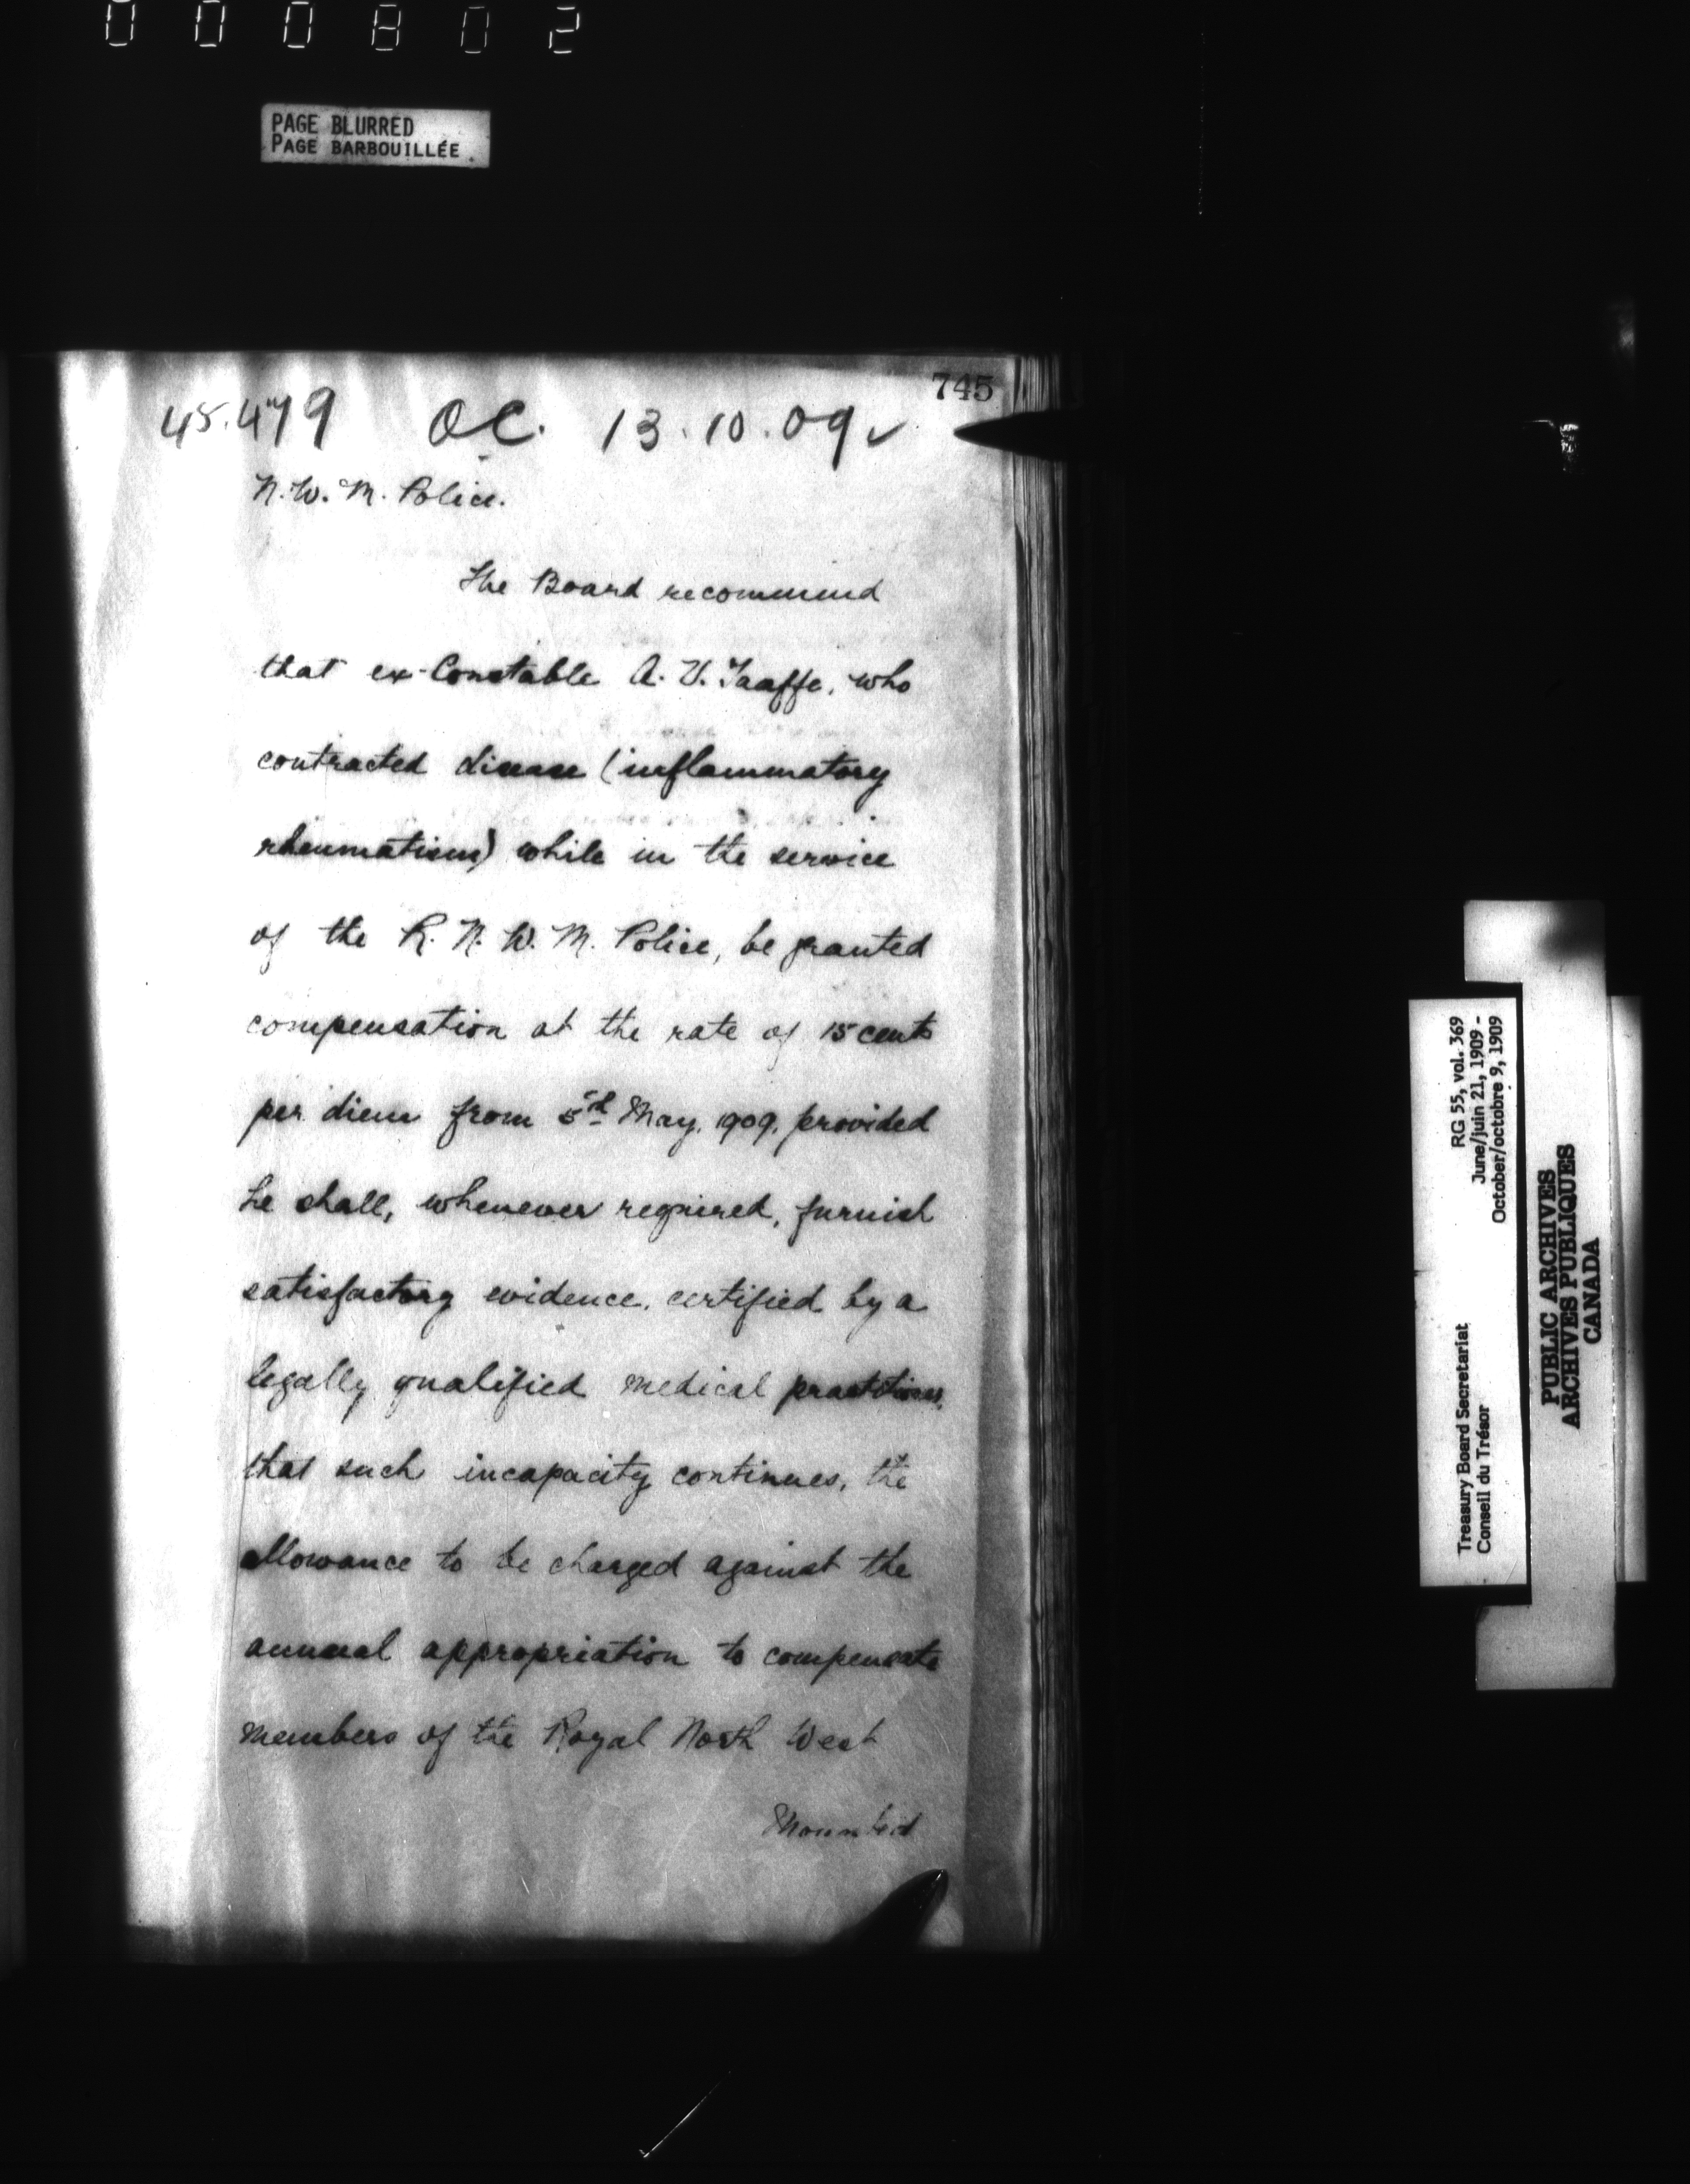 000802
PAGE BLURRED
PAGE BARBOUILLÉE
745
45.479 OC. 13.10.09 ✓
N. W. M. Police.
The Board recommend
that ex-Constable A. V. Taaffe, who
contracted disease (inflammatory
rheumatism) while in the service
of the R. N. W. M. Police, be granted
compensation at the rate of 15 cents
per diem from May, 1909, provided
he shall, whenever required, furnish
satisfactory evidence, certified by a
legally qualified medical practitioner,
that such incapacity continues, the
allowance to be charged against the
annual appropriation to compensate
members of the Royal North West
Mounted
RG 55, vol. 369
June/juin 21, 1909 -
October/octobre 9, 1909
Treasury Board Secretariat
Conseil du Trésor
PUBLIC ARCHIVES
ARCHIVES PUBLIQUES
CANADA